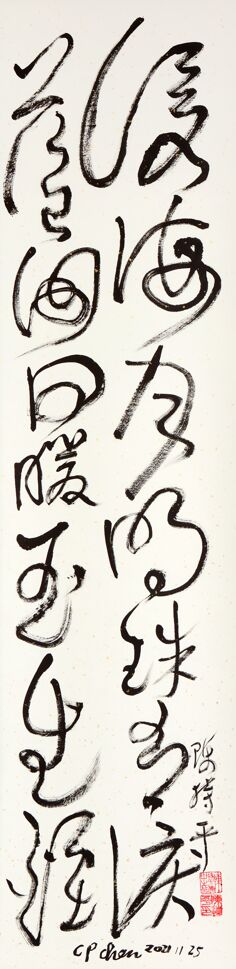 滄海月明珠有淚
藍田日暖玉生煙
陳持平
CP Chen 2021 11 25